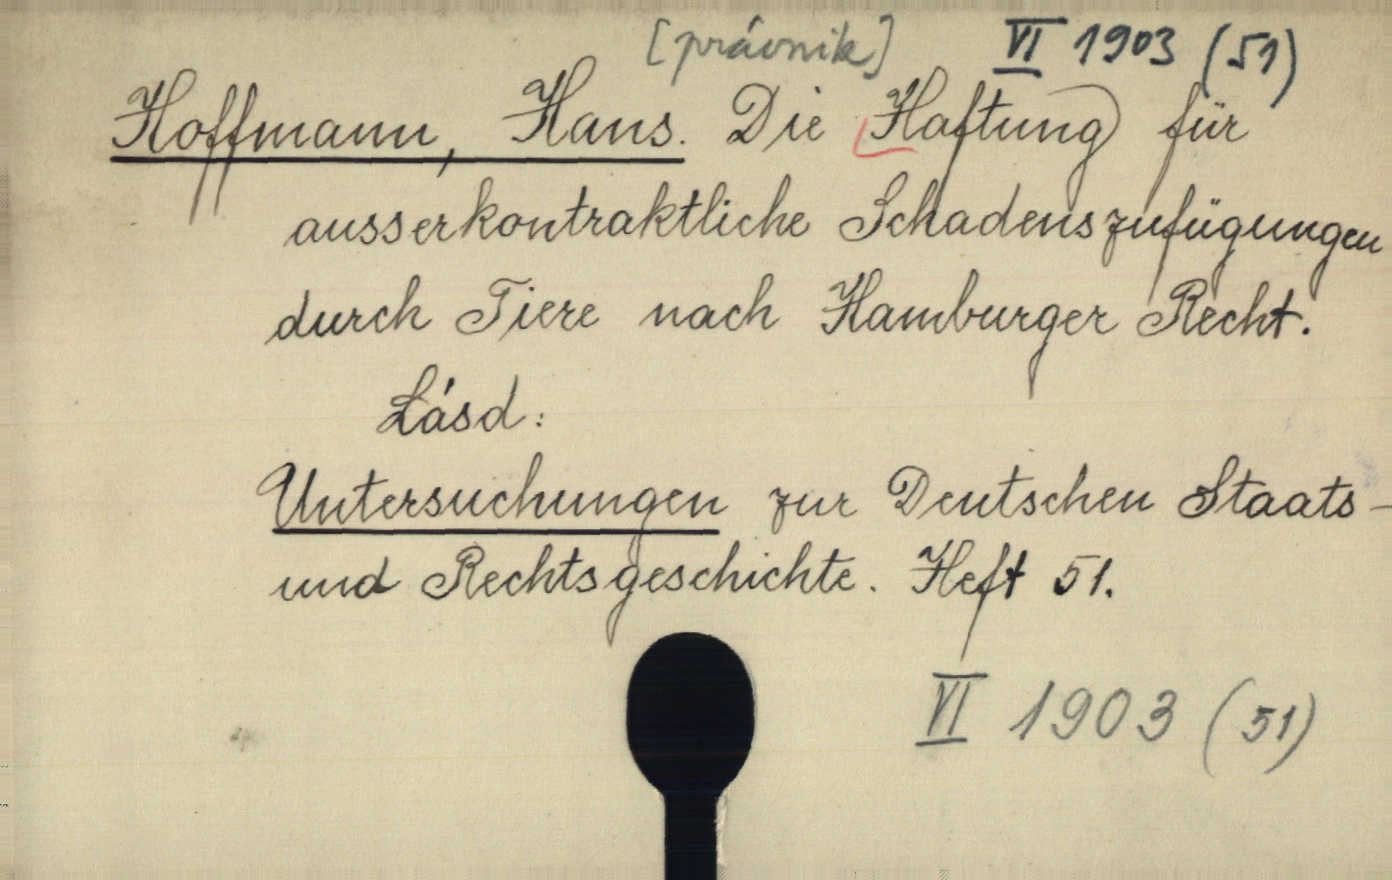 [právnik] VI 1903 (51)
Hoffmann, Hans. Die Haftung für
ausserkontraktliche Schadenszufügungen
durch Tiere nach Hamburger Recht.
Lásd:
Untersuchungen zur Deutschen Staats-
und Rechtsgeschichte. Heft 51.
VI 1903 (51)